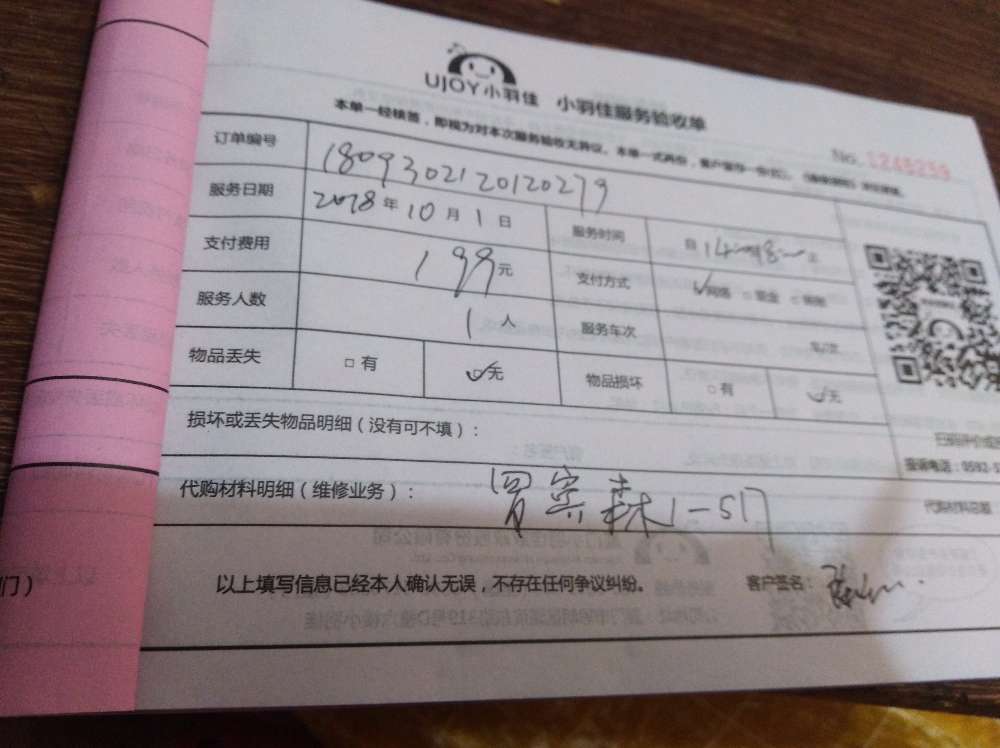 UJOY小羽佳 小羽佳服务验收单
本单一经核签，即视为对本次服务验收无异议。本单一式两份，客户留存一份
No. 1245239
订单编号 1809302120120279
服务日期 2018年10月1日 服务时间 自14 18 至
支付费用 199元 支付方式 网络 □现金 □
服务人数 1人 服务车次 车次
物品丢失 □有 无 物品损坏 □有 无
损坏或丢失物品明细（没有可不填）：
扫码评价或
投诉电话：0592-5
代购材料明细（维修业务）： 罗宾森1-517
代购材料总额：
门）
以上填写信息已经本人确认无误，不存在任何争议纠纷。 客户签名：